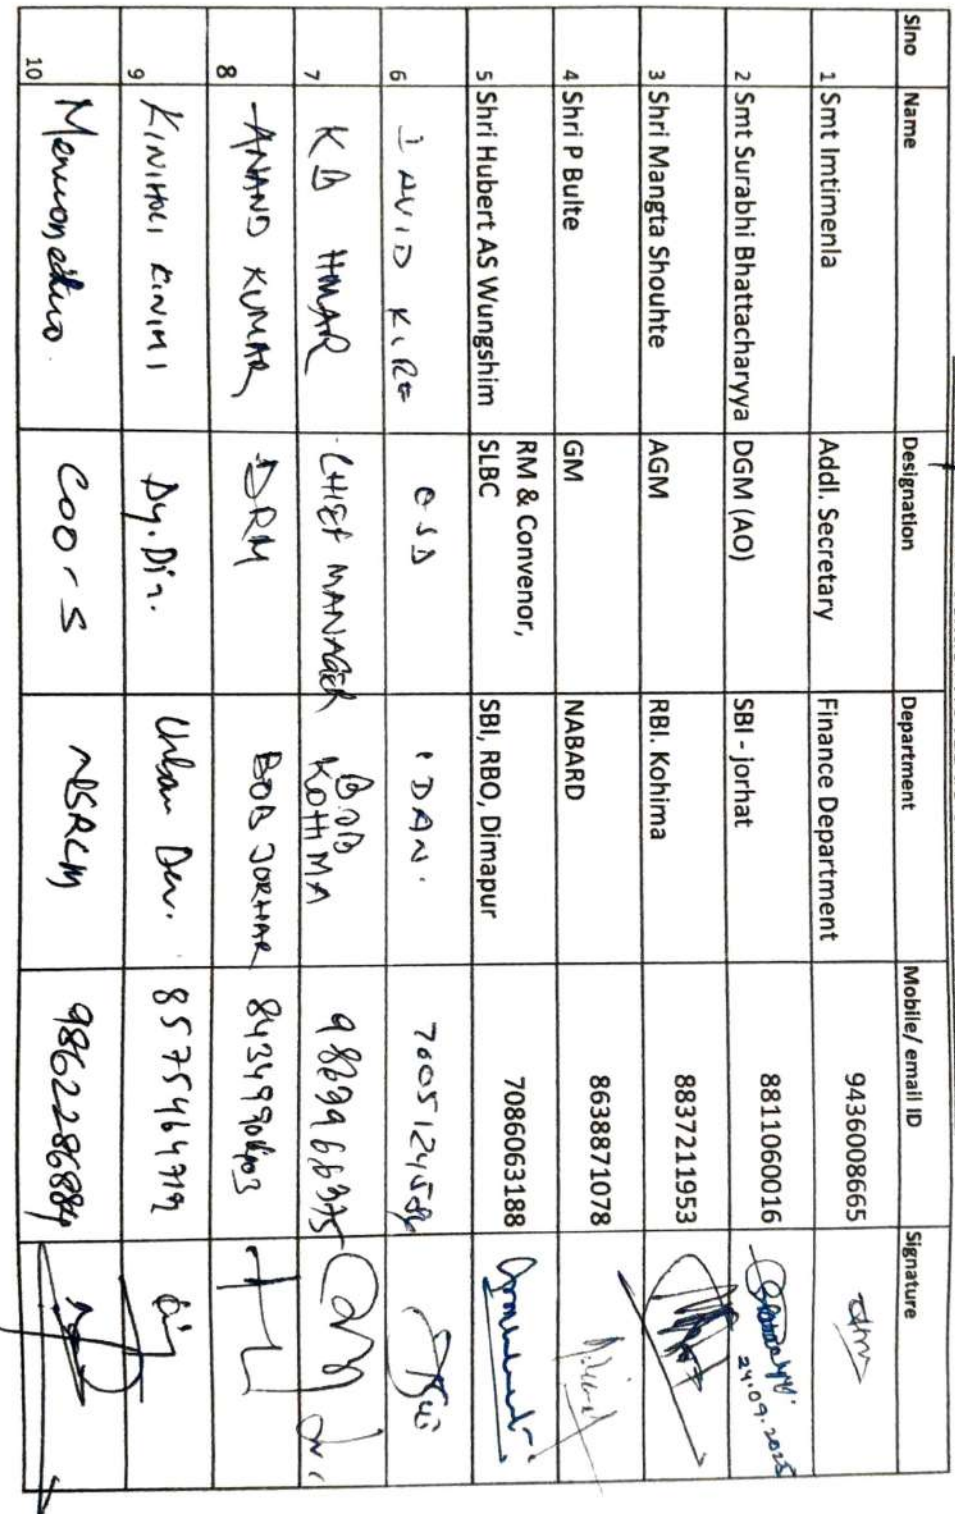 Slno Name Designation Department Mobile/ email ID Signature
1 Smt Imtimenla Addl. Secretary Finance Department 9436008665
2 Smt Surabhi Bhattacharyya DGM (AO) SBI - jorhat 8811060016 24.09.2025
3 Shri Mangta Shouhte AGM RBI. Kohima 8837211953
4 Shri P Bulte GM NABARD 8638871078
5 Shri Hubert AS Wungshim RM & Convenor, SBI, RBO, Dimapur 7086063188
SLBC
6 KIRE OSD IDAN.
7 K B HMAR CHIEF MANAGER BOB
KOHIMA
8 ANAND KUMAR DRM BOB
9 KINIMI Dy. Dir. Urban Dev.
10 COO-S NSRLM